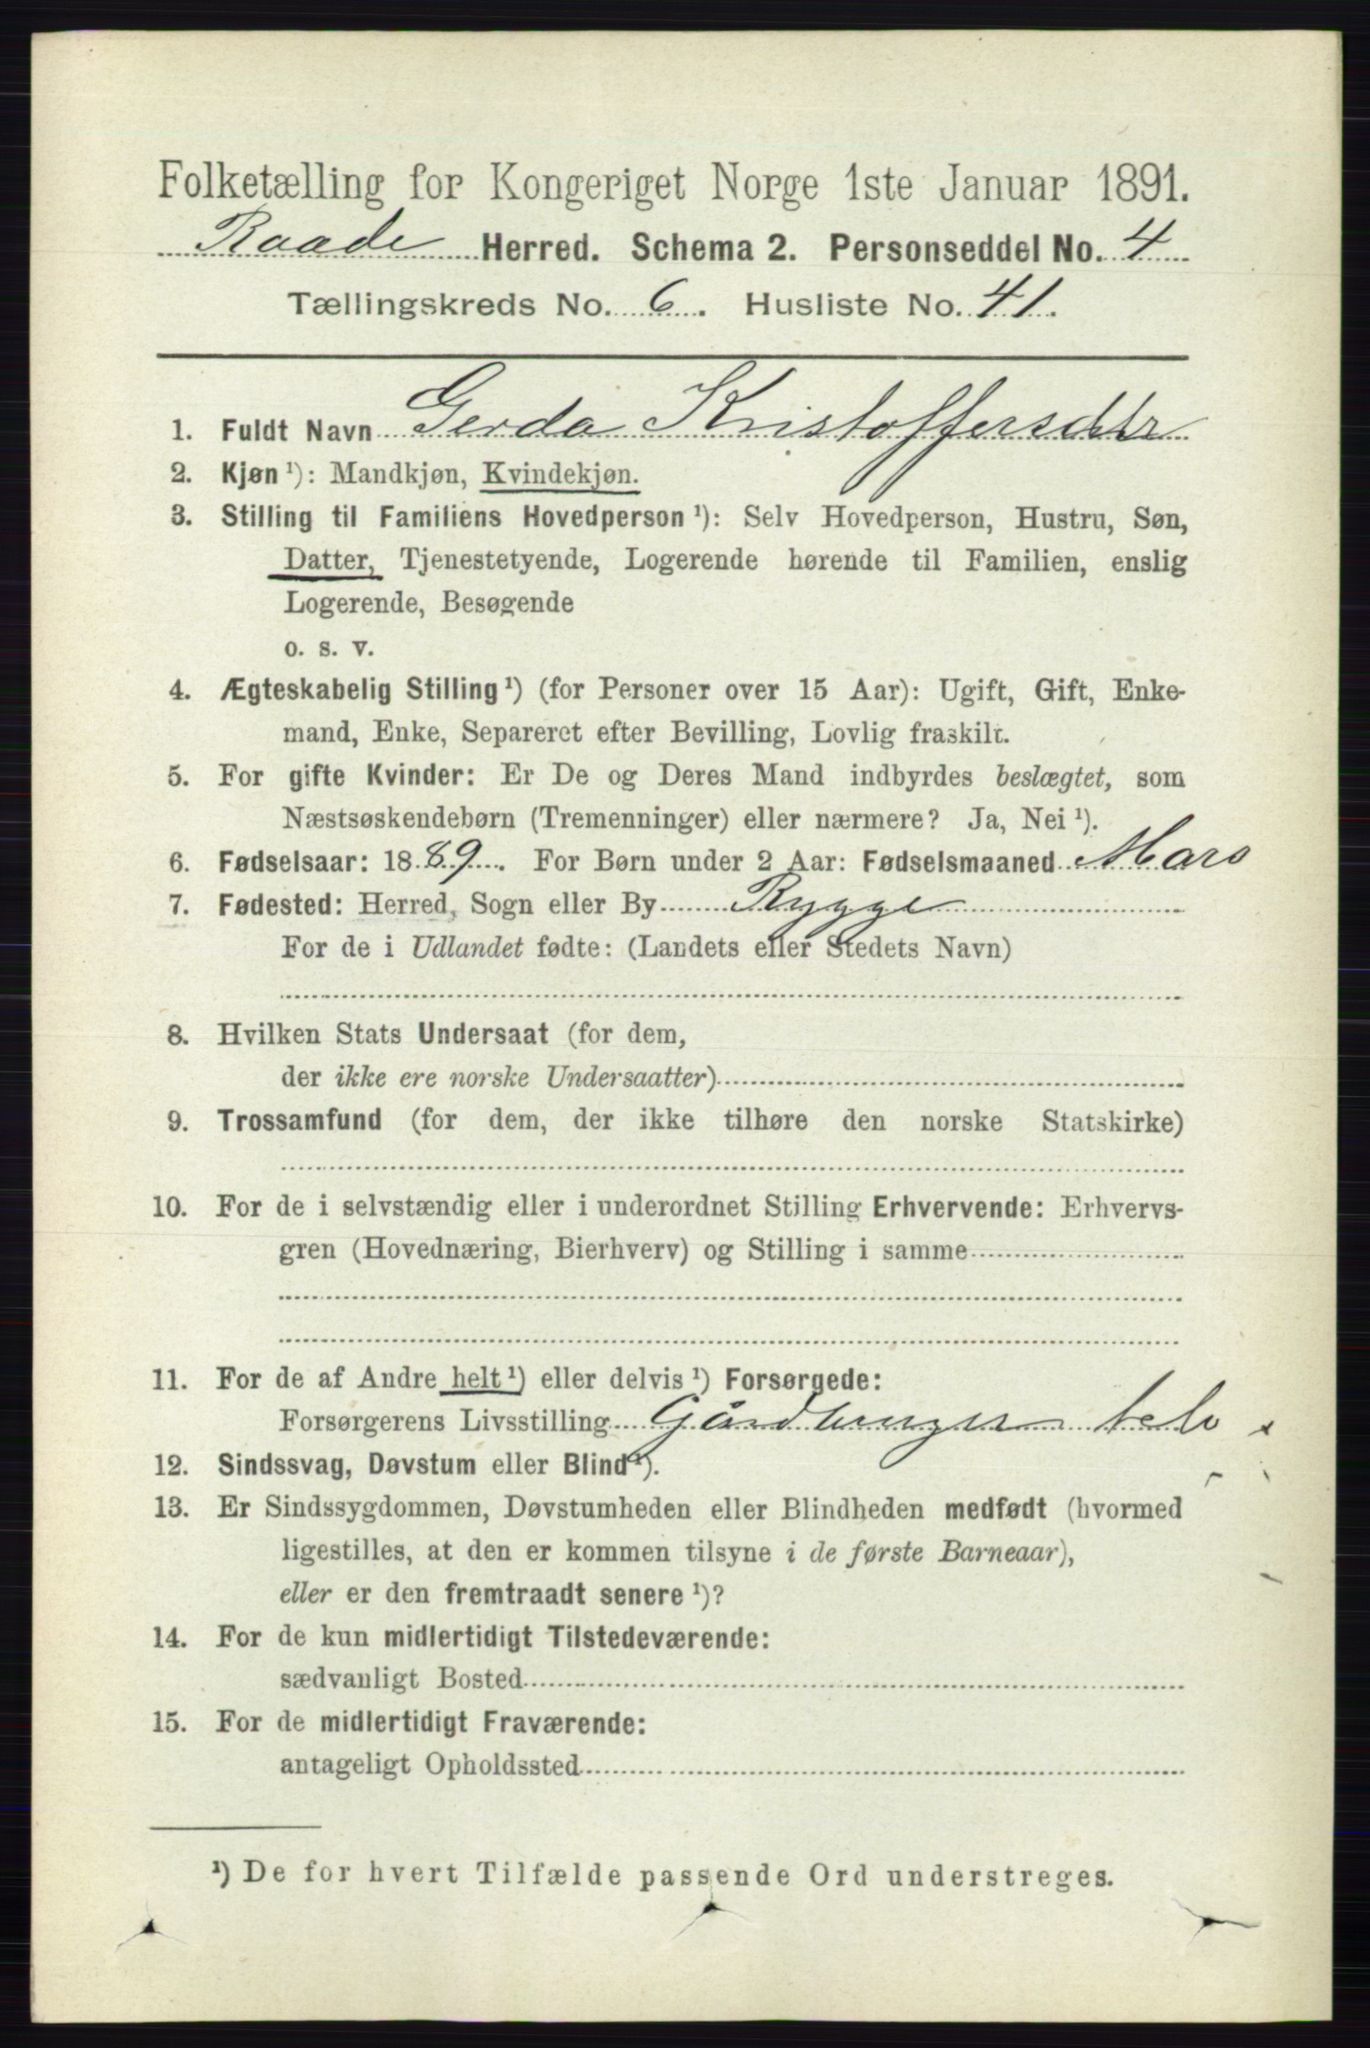 Folketælling for Kongeriget Norge 1ste Januar 1891.
Raade Herred. Schema 2. Personseddel No. 4
Tællingskreds No. 6. Husliste No. 41.
1. Fuldt Navn Gerda Kristoffersdtr
2. Kjøn ¹): Mandkjøn, Kvindekjøn.
3. Stilling til Familiens Hovedperson ¹): Selv Hovedperson, Hustru, Søn,
Datter, Tjenestetyende, Logerende hørende til Familien, enslig
Logerende, Besøgende
o. s. v.
4. Ægteskabelig Stilling ¹) (for Personer over 15 Aar): Ugift, Gift, Enke-
mand, Enke, Separeret efter Bevilling, Lovlig fraskilt.
5. For gifte Kvinder: Er De og Deres Mand indbyrdes beslægtet, som
Næstsøskendebørn (Tremenninger) eller nærmere? Ja, Nei ¹).
6. Fødselsaar: 1889. For Børn under 2 Aar: Fødselsmaaned Mars
7. Fødested: Herred, Sogn eller By Rygge
For de i Udlandet fødte: (Landets eller Stedets Navn)
8. Hvilken Stats Undersaat (for dem,
der ikke ere norske Undersaatter)
9. Trossamfund (for dem, der ikke tilhøre den norske Statskirke)
10. For de i selvstændig eller i underordnet Stilling Erhvervende: Erhvervs-
gren (Hovednæring, Bierhverv) og Stilling i samme
11. For de af Andre helt ¹) eller delvis ¹) Forsørgede:
Forsørgerens Livsstilling Gårdbruger
12. Sindssvag, Døvstum eller Blind ¹).
13. Er Sindssygdommen, Døvstumheden eller Blindheden medfødt (hvormed
ligestilles, at den er kommen tilsyne i de første Barneaar),
eller er den fremtraadt senere ¹)?
14. For de kun midlertidigt Tilstedeværende:
sædvanligt Bosted
15. For de midlertidigt Fraværende:
antageligt Opholdssted
¹) De for hvert Tilfælde passende Ord understreges.